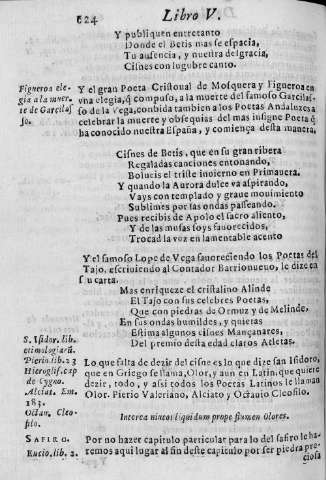 624 Libro V.
Y publiquen entretanto
Donde el Betis mas se espacia,
Tu ausencia, y nuestra desgracia,
Cisnes con lugubre canto.
Figueroa ele-
gia a la muer-
te de Garcilas
so.
Y el gran Poeta Cristoual de Mosquera y Figueroa en
vna elegia, q̃ compuso, a la muerte del famoso Garcilas-
so de la Vega, conbida tambien a los Poetas Andaluzes a
celebrar la muerte y obsequias del mas insigne Poeta q̃
ha conocido nuestra España, y comiença desta manera,
Cisnes de Betis, que en su gran ribera
Regaladas canciones entonando,
Bolueis el triste inuierno en Primauera.
Y quando la Aurora dulce va aspirando,
Vays con templado y graue mouimiento
Sublimes por las ondas passeando.
Pues recibis de Apolo el sacro aliento,
Y de las musas soys fauorecidos,
Trocad la voz en lamentable acento
Y el famoso Lope de Vega fauoreciendo los Poetas del
Tajo, escriuiendo al Contador Barrionueuo, le dize en
su carta.
Mas enriquece el cristalino Alinde
El Tajo con sus celebres Poetas,
Que con piedras de Ormuz y de Melinde,
En sus ondas humildes, y quietas
Estima algunos cisnes Mançanares,
Del premio desta edad claros Atletas.
S. Isidor. lib.
etimologiarũ.
Pierio. lib. 23
Hieroglif. cap
de cygno.
Alciat. Em.
183.
Octau. Cleo-
filo.
Lo que falta de dezir del cisne es lo que dize san Isidoro,
que en Griego se llama, Olor, y aun en Latin, que quiere
dezir, todo, y assi todos los Poetas Latinos le llaman
Olor. Pierio Valeriano, Alciato y Octauio Cleofilo.
Interea niueos liquidum prope flumen Olores.
SAFIRO.
Rucio. lib. 2.
Por no hazer capitulo particular para lo del safiro le ha-
remos aqui lugar al fin deste capitulo por ser piedra pre-
ciosa